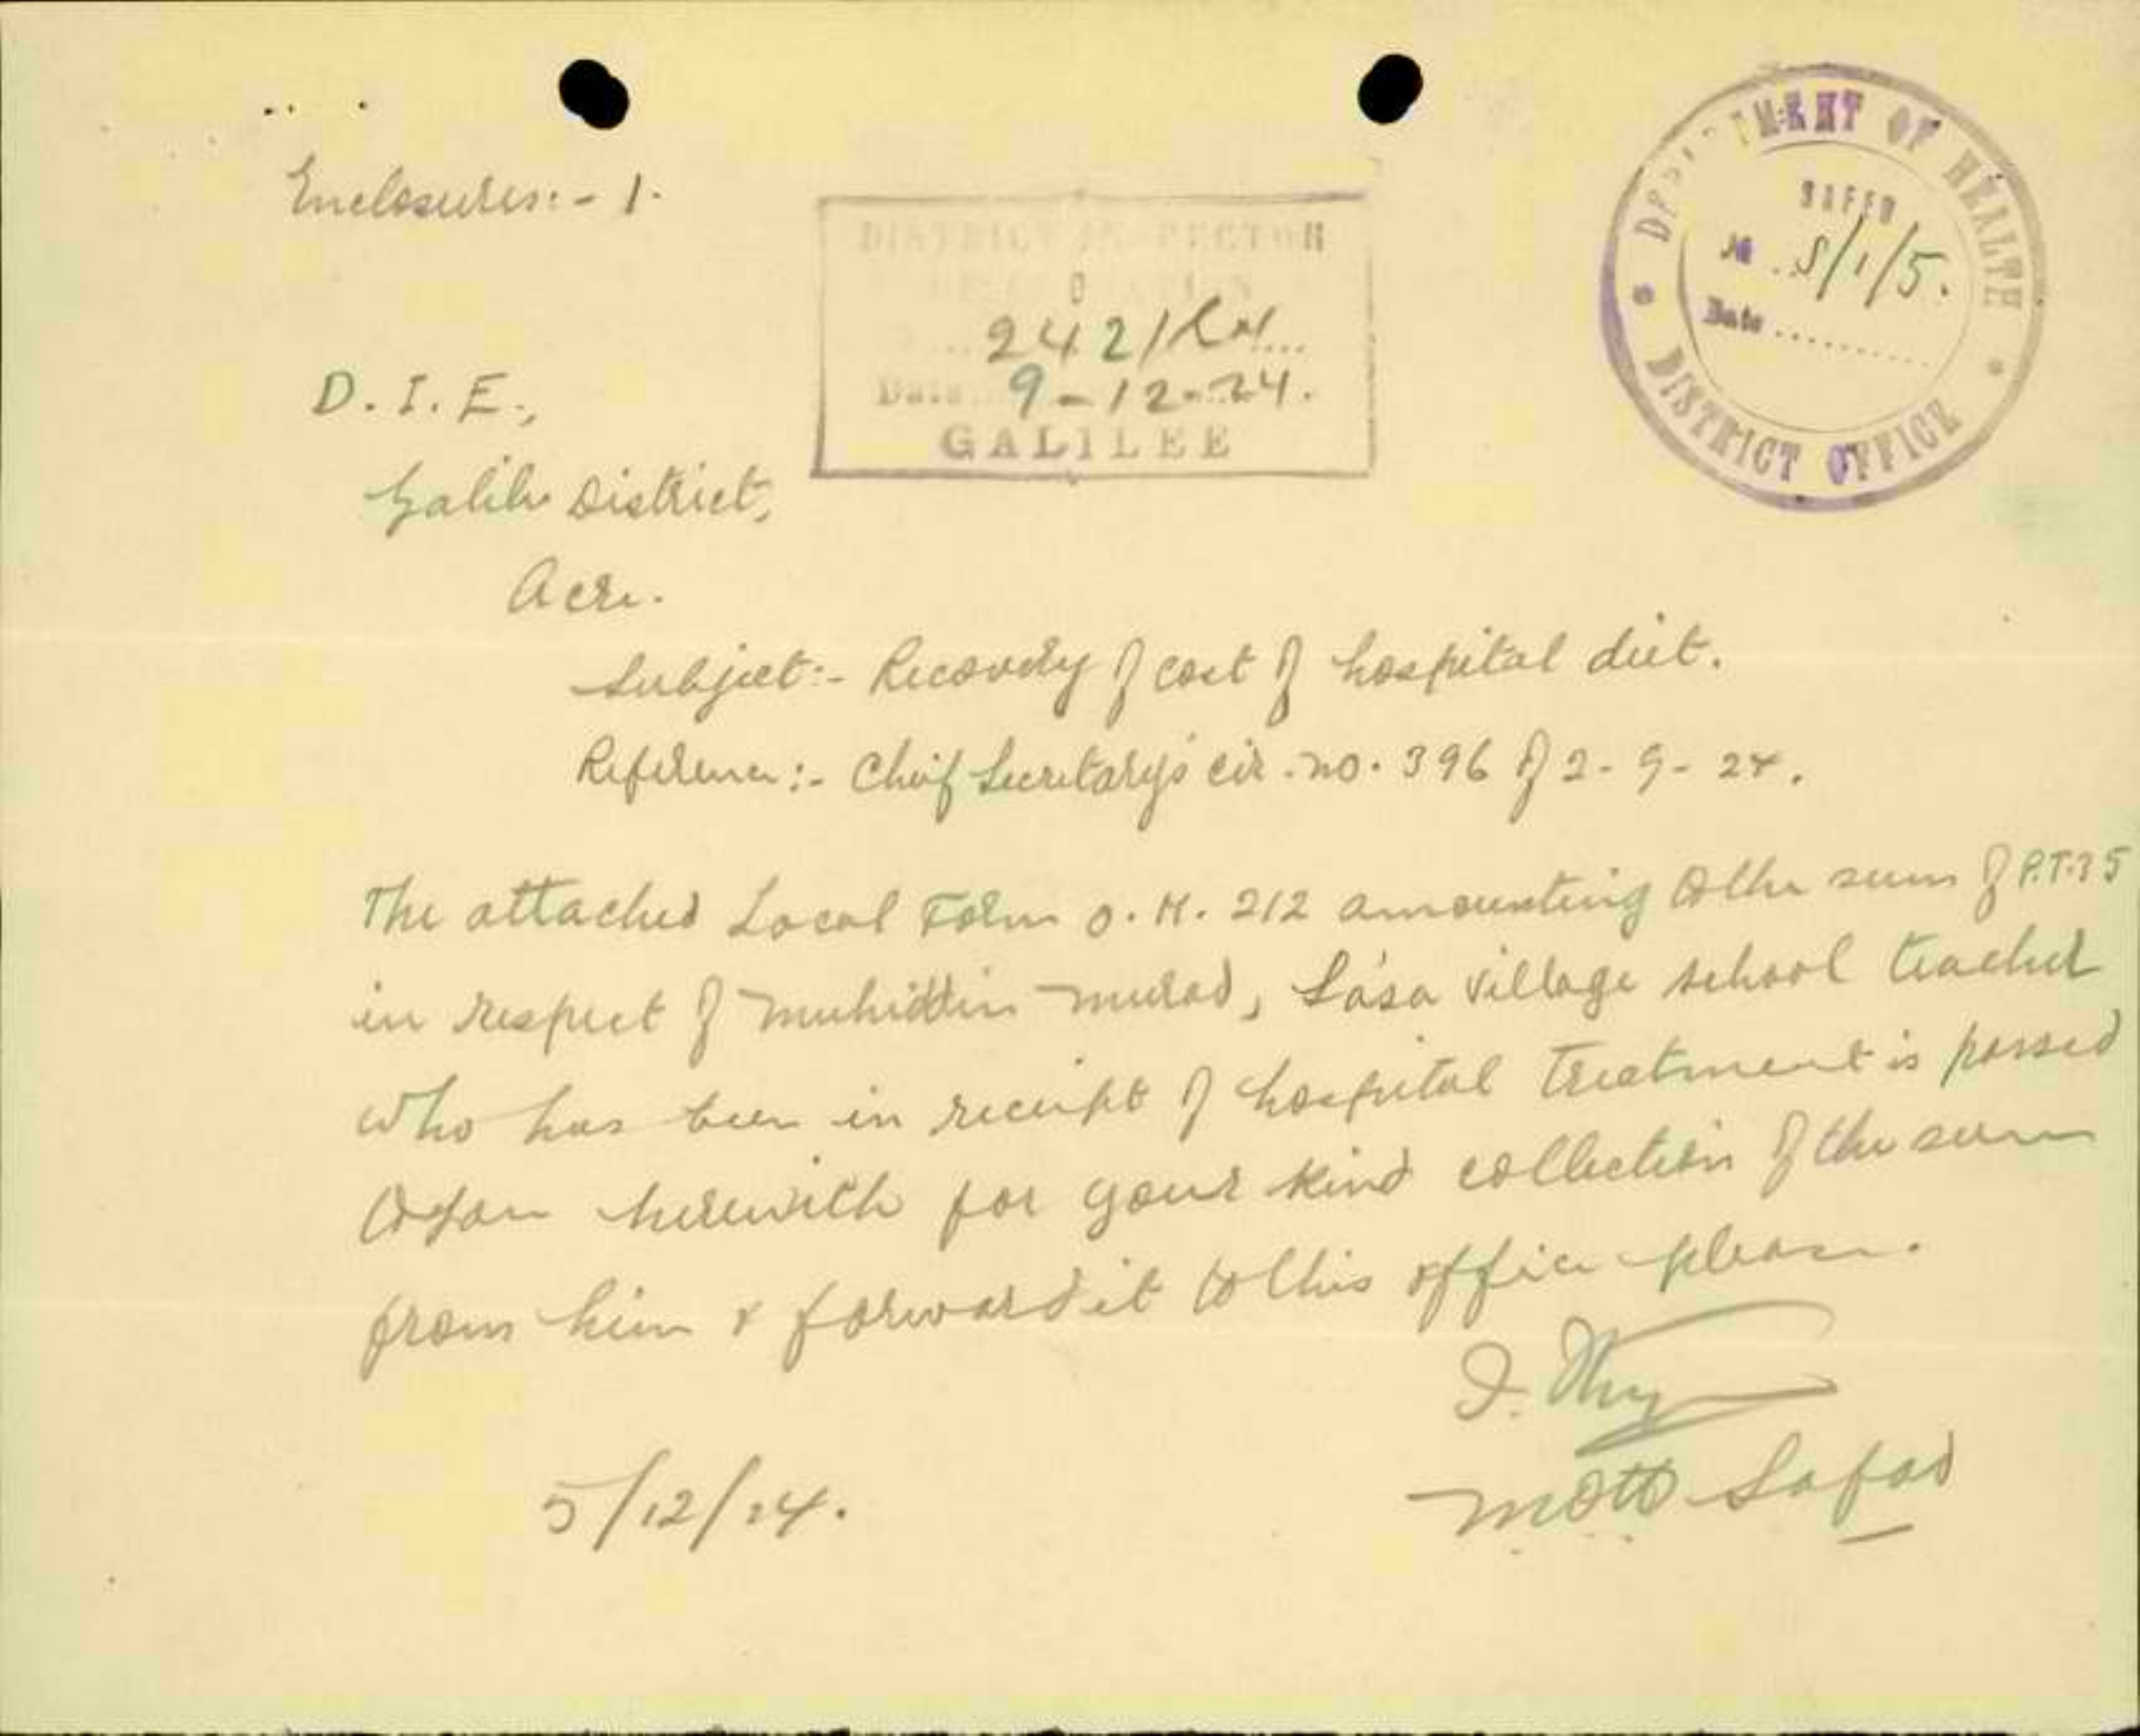 Enclosures:- 1.
DEPARTMENT OF HEALTH
SAFED
№ S/1/5.
Date ..........
DISTRICT OFFICE
DISTRICT INSPECTOR
242/
Date 9-12-24.
GALILEE
D. I. E.,
Galilee District,
Acre.
Subject:- Recovery of cost of hospital diet.
Reference:- Chief Secretary's cir. no. 396 of 2-9-24.
The attached Local Form O.H. 212 amounting to the sum of P.T.35
in respect of Muhiddin Murad, Sa'sa village school teacher
who has been in receipt of hospital treatment is passed
to you herewith for your kind collection of the sum
from him & forward it to this office please.
5/12/24.
Safad